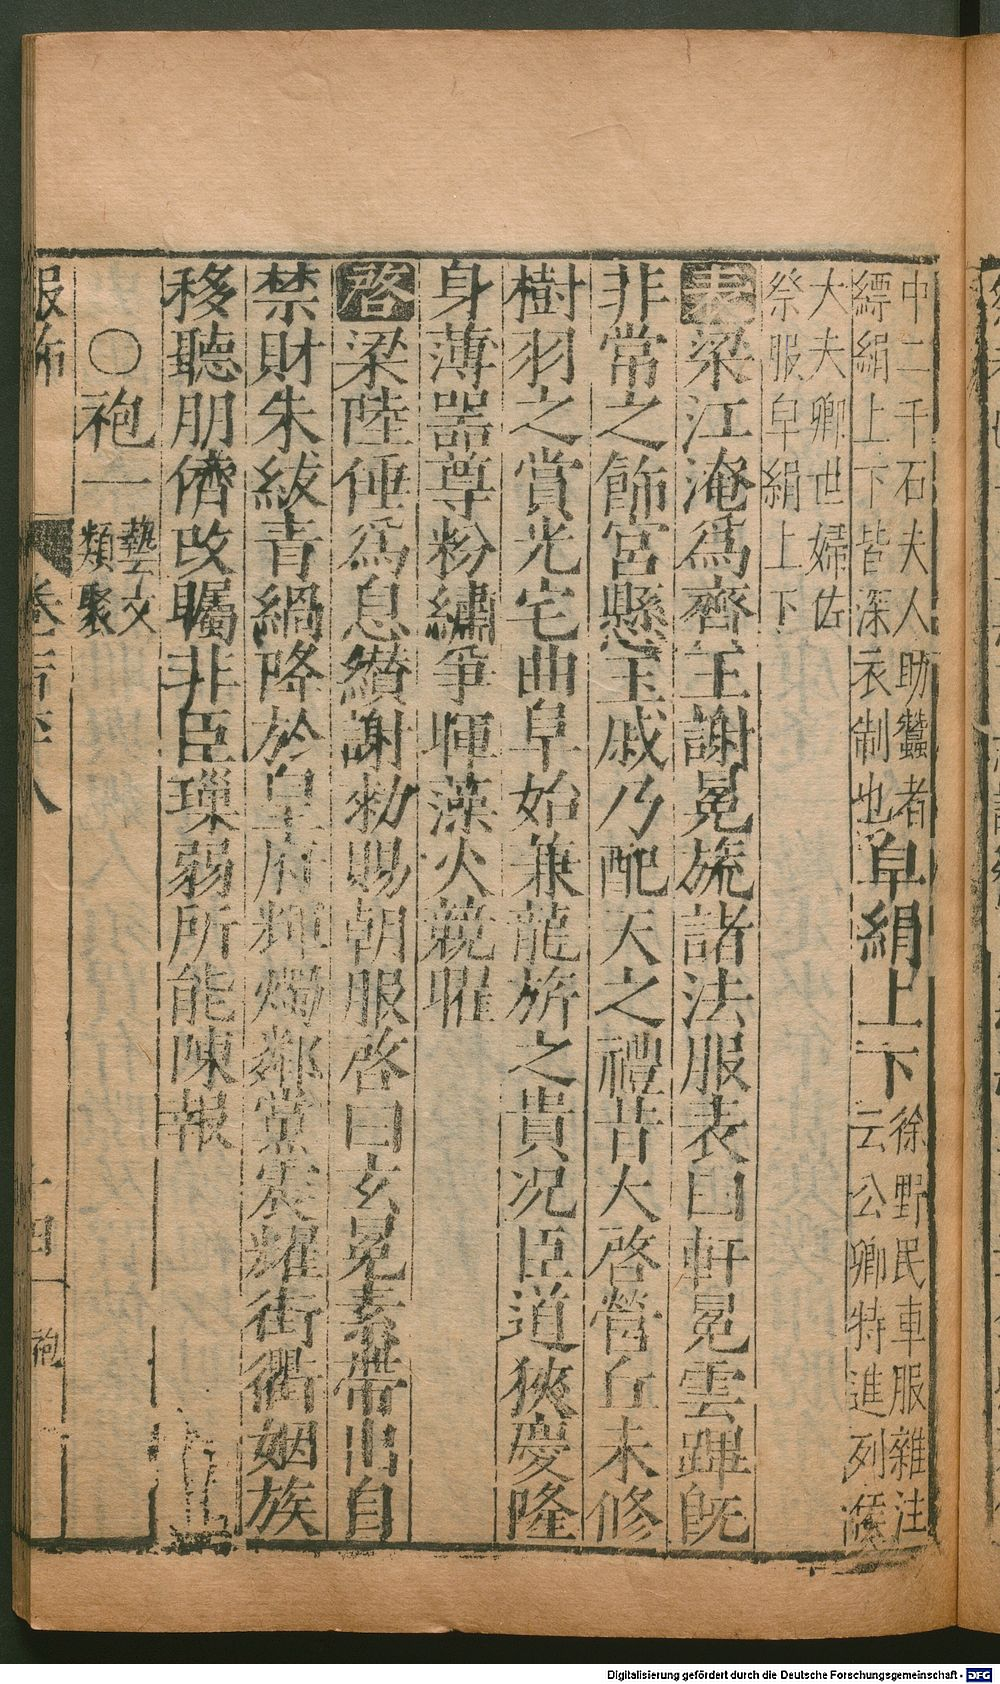 中二千石夫人助蠶者
縹絹上下皆深衣制也
皁絹上下
徐野民車服雜注
云公卿特進列侯
大夫卿世婦佐
祭服皁絹上下
表梁江淹爲齊王謝冕旒諸法服表曰軒冕雲蹕旣
非常之飾宮懸玉戚乃配天之禮昔大啓營丘未修
樹羽之賞光宅曲阜始兼龍旂之貴況臣道狹慶隆
身薄器尊粉繡爭暉藻火競耀
啓梁陸倕爲息纉謝勑賜朝服啓曰玄冕素帶出自
禁財朱紱青緺降於皇府輝燭鄰黨震耀街衢姻族
移聽朋儕改矚非臣璅弱所能陳報
〇袍一
藝文
類聚
服飾
袍
Digitalisierung gefördert durch die Deutsche Forschungsgemeinschaft - DFG